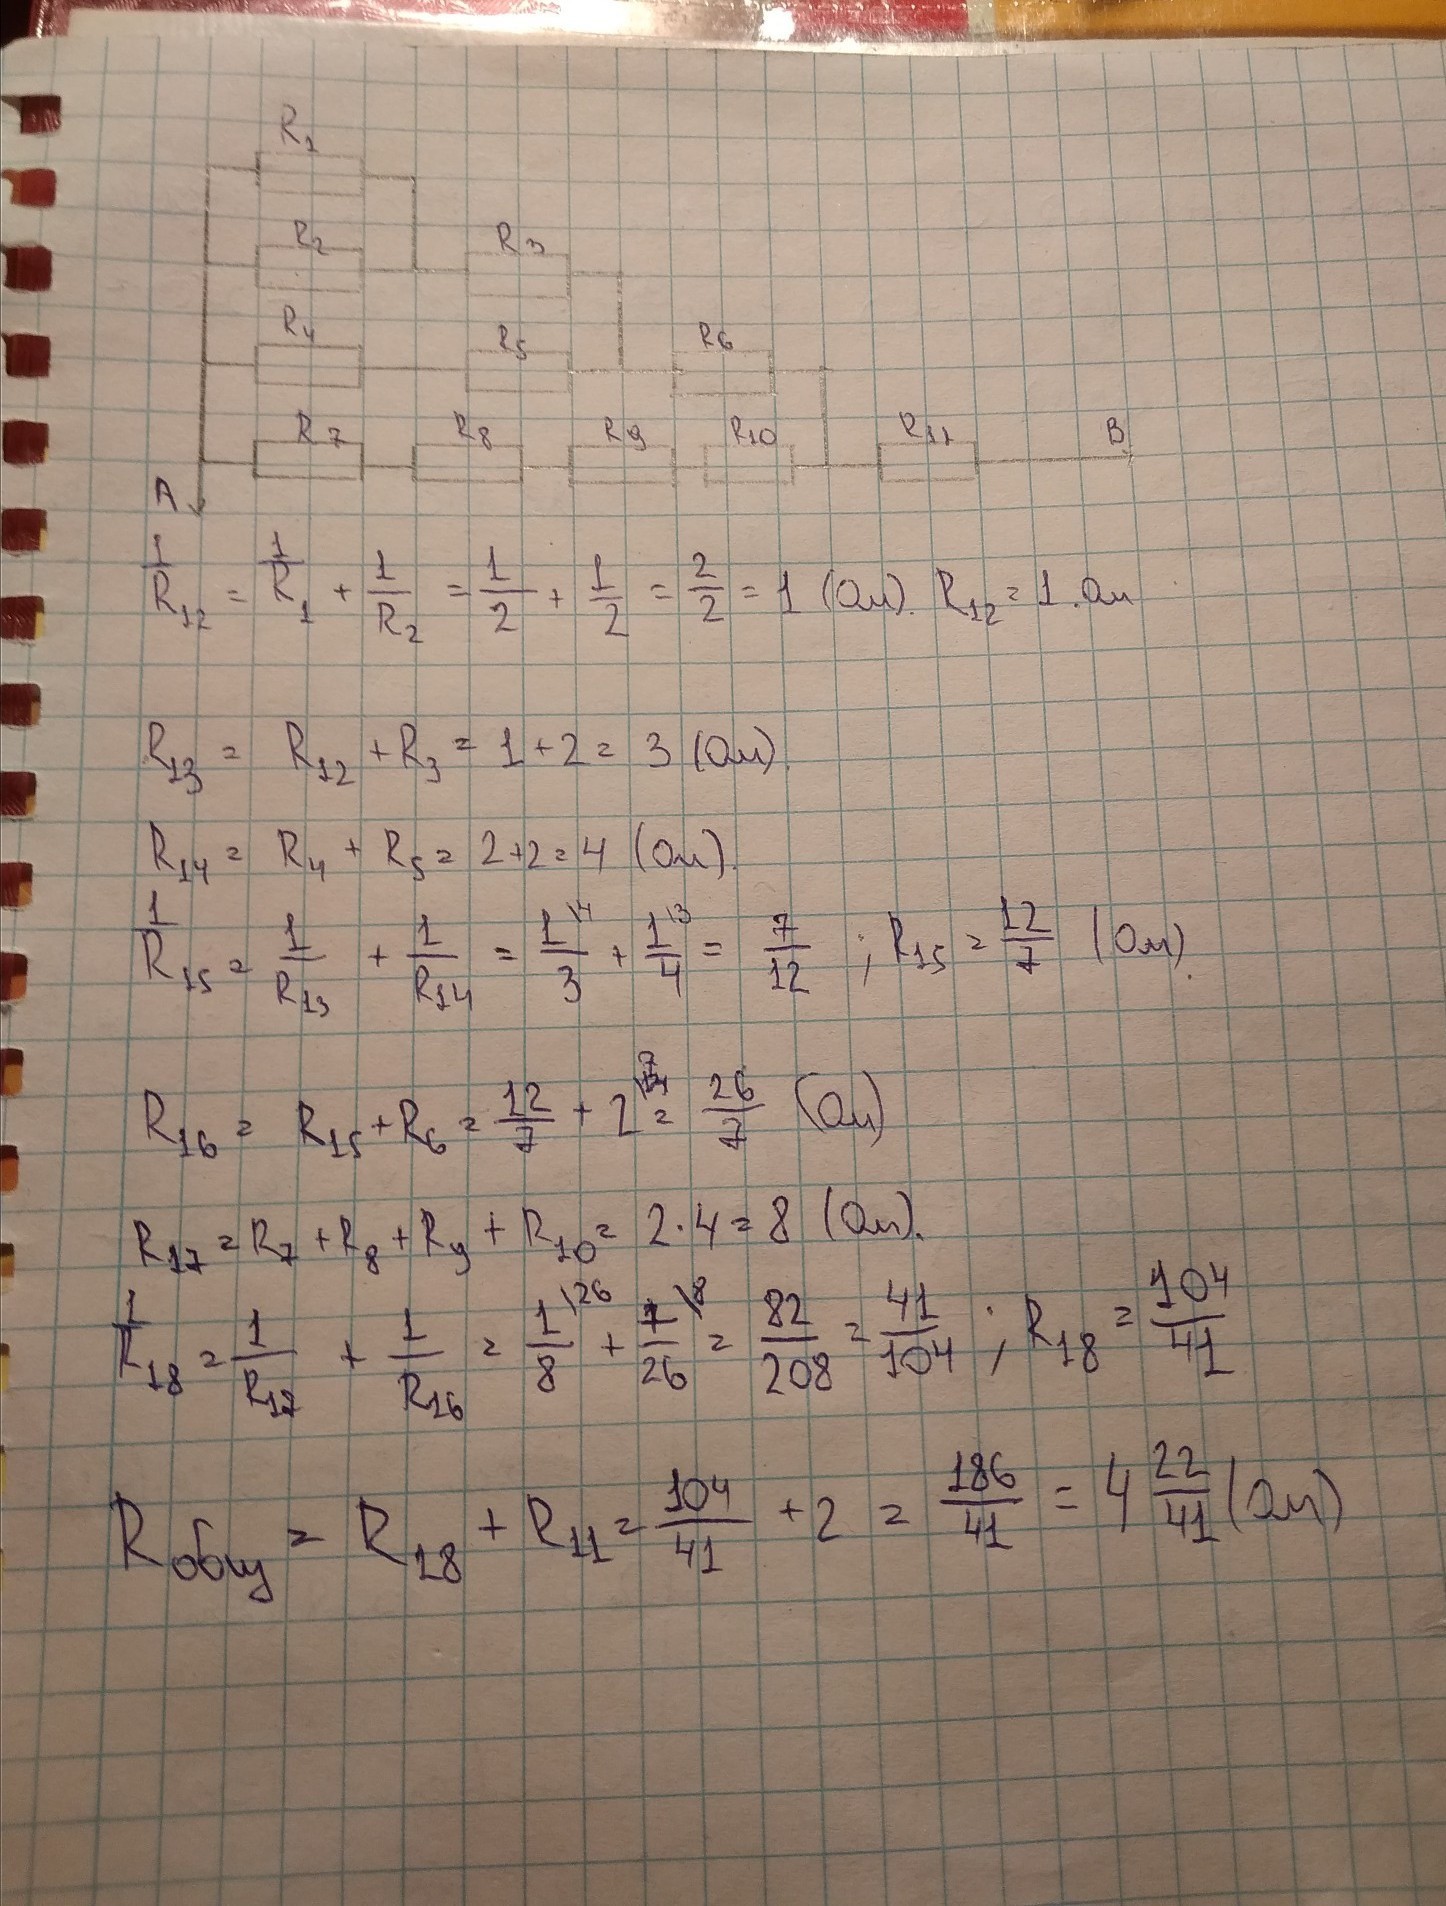 R₁
R₂ R₃
R₄ R₅ R₆
R₇ R₈ R₉ R₁₀ R₁₁ B
A
1/R₁₂ = 1/R₁ + 1/R₂ = 1/2 + 1/2 = 2/2 = 1 (Ом). R₁₂ = 1 Ом
R₁₃ = R₁₂ + R₃ = 1 + 2 = 3 (Ом).
R₁₄ = R₄ + R₅ = 2 + 2 = 4 (Ом).
1/R₁₅ = 1/R₁₃ + 1/R₁₄ = 1\4/3 + 1\3/4 = 7/12 ; R₁₅ = 12/7 (Ом).
R₁₆ = R₁₅ + R₆ = 12/7 + 2\7 = 26/7 (Ом)
R₁₇ = R₇ + R₈ + R₉ + R₁₀ = 2 · 4 = 8 (Ом).
1/R₁₈ = 1/R₁₇ + 1/R₁₆ = 1\26/8 + 7\8/26 = 82/208 = 41/104 ; R₁₈ = 104/41
Rобщ = R₁₈ + R₁₁ = 104/41 + 2 = 186/41 = 4 22/41 (Ом)